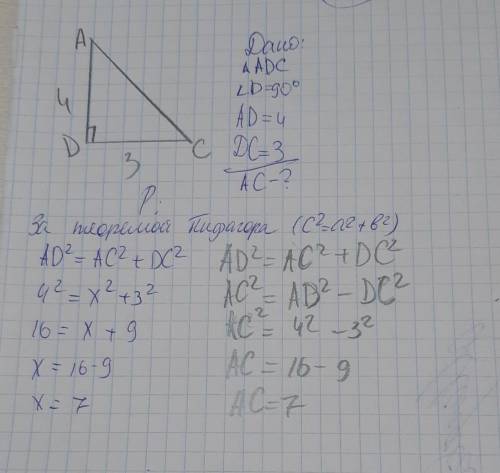 A
4
D
3
C
Дано:
△ADC
∠D=90°
AD=4
DC=3
AC-?
Р:
За теоремой Пифагора (C²=a²+b²)
AD²=AC²+DC²
4²=x²+3²
16=x+9
x=16-9
x=7
AD²=AC²+DC²
AC²=AD²-DC²
AC²=4²-3²
AC=16-9
AC=7